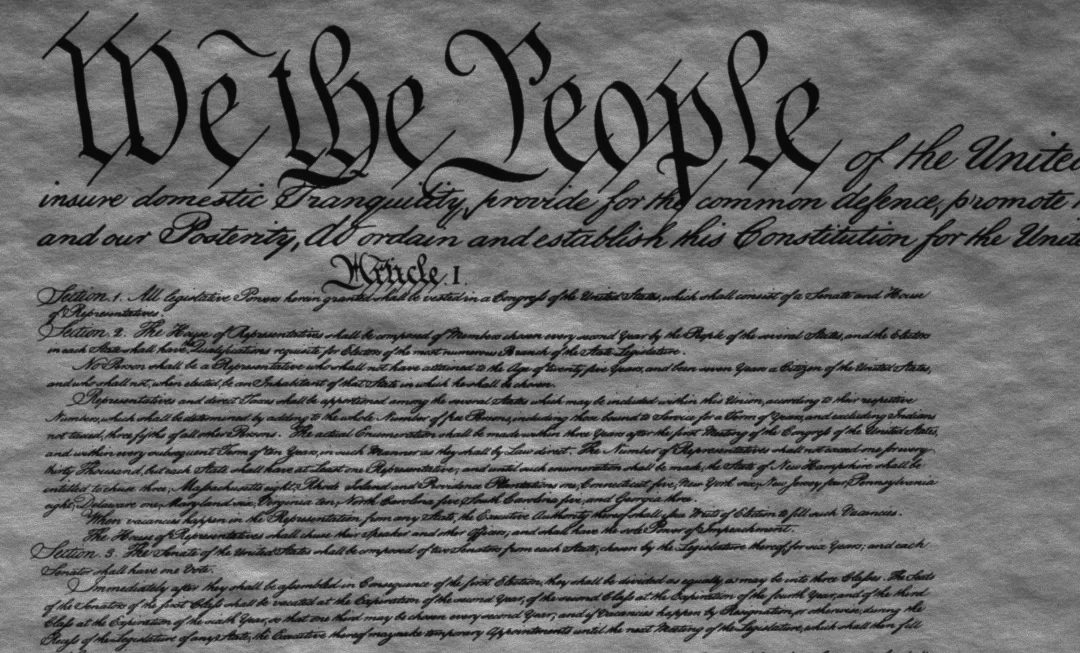 We the People of the United
insure domestic Tranquility, provide for the common defence, promote
and our Posterity, do ordain and establish this Constitution for the Unite
Article. I.
Section. 1. All legislative Powers herein granted shall be vested in a Congress of the United States, which shall consist of a Senate and House
of Representatives.
Section. 2. The House of Representatives shall be composed of Members chosen every second Year by the People of the several States, and the Electors
in each State shall have Qualifications requisite for Electors of the most numerous Branch of the State Legislature.
No Person shall be a Representative who shall not have attained to the Age of twenty five Years, and been seven Years a Citizen of the United States,
and who shall not, when elected, be an Inhabitant of that State in which he shall be chosen.
Representatives and direct Taxes shall be apportioned among the several States which may be included within this Union, according to their respective
Numbers, which shall be determined by adding to the whole Number of free Persons, including those bound to Service for a Term of Years, and excluding Indians
not taxed, three fifths of all other Persons. The actual Enumeration shall be made within three Years after the first Meeting of the Congress of the United States,
and within every subsequent Term of ten Years, in such Manner as they shall by Law direct. The Number of Representatives shall not exceed one for every
thirty Thousand, but each State shall have at Least one Representative; and until such enumeration shall be made, the State of New Hampshire shall be
entitled to chuse three, Massachusetts eight, Rhode Island and Providence Plantations one, Connecticut five, New York six, New Jersey four, Pennsylvania
eight, Delaware one, Maryland six, Virginia ten, North Carolina five, South Carolina five, and Georgia three.
When vacancies happen in the Representation from any State, the Executive Authority thereof shall issue Writs of Election to fill such Vacancies.
The House of Representatives shall chuse their Speaker and other Officers; and shall have the sole Power of Impeachment.
Section. 3. The Senate of the United States shall be composed of two Senators from each State, chosen by the Legislature thereof for six Years; and each
Senator shall have one Vote.
Immediately after they shall be assembled in Consequence of the first Election, they shall be divided as equally as may be into three Classes. The Seats
of the Senators of the first Class shall be vacated at the Expiration of the second Year, of the second Class at the Expiration of the fourth Year, and of the third
Class at the Expiration of the sixth Year, so that one third may be chosen every second Year; and if Vacancies happen by Resignation, or otherwise, during the
Recess of the Legislature of any State, the Executive thereof may make temporary Appointments until the next Meeting of the Legislature, which shall then fill